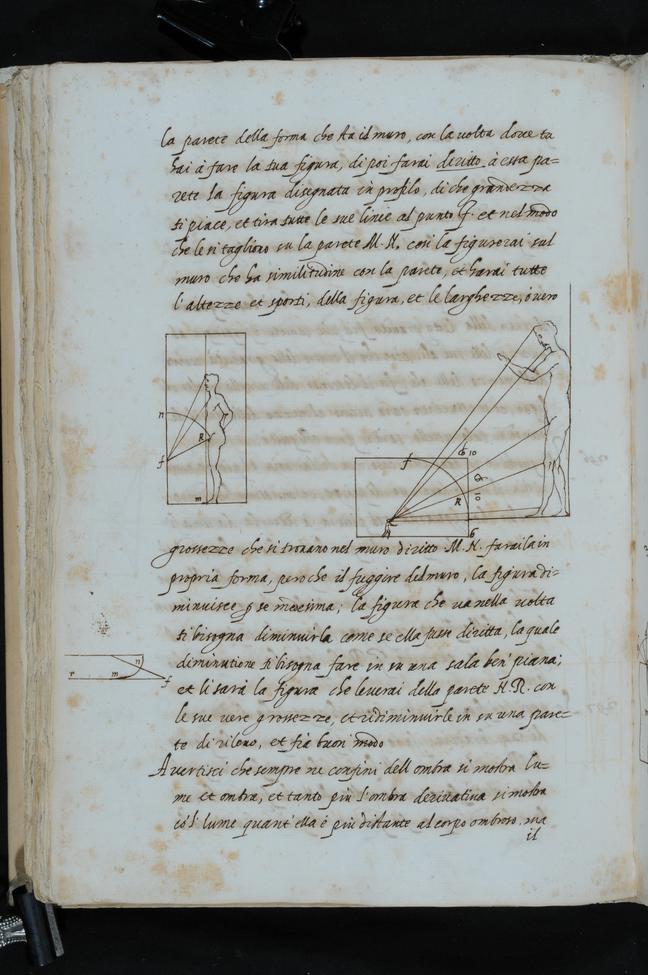 la parete della forma che sta il muro, con la volta doue tu
hai à fare la tua figura, di poi farai diritto, à essa pa=
rete la figura disegnata in profilo, di che grandezza
ti piace, et tira tutte le sue linie al punto f. et nel modo
che le si tagliono su la parete M. N. così la figurerai sul
muro che ha similitudine con la parete, et harai tutte
l'altezze et sporti, della figura, et le larghezze, ò uero
n
R
f
m
f
10
R
6
grossezze che si trouano nel muro diritto M. N. farai la in
propria forma, però che il fuggire del muro, la figura di=
minuisce p se medesima; la figura che ua nella uolta
ti bisogna diminuirla come se ella fusse diritta, la quale
diminutione ti bisogna fare in su una sala ben' piana;
r m n f
et lì sarà la figura che leuerai della parete N. R. con
le sue uere grossezze, et ridiminuirle in su una pare=
te di rileuo, et fia buon modo
Auertisci che sempre ne confini dell' ombra si mostra lu=
me et ombra, et tanto più l'ombra deriuatiua si mostra
co'l lume quant' ella è più distante al corpo ombroso, ma
il